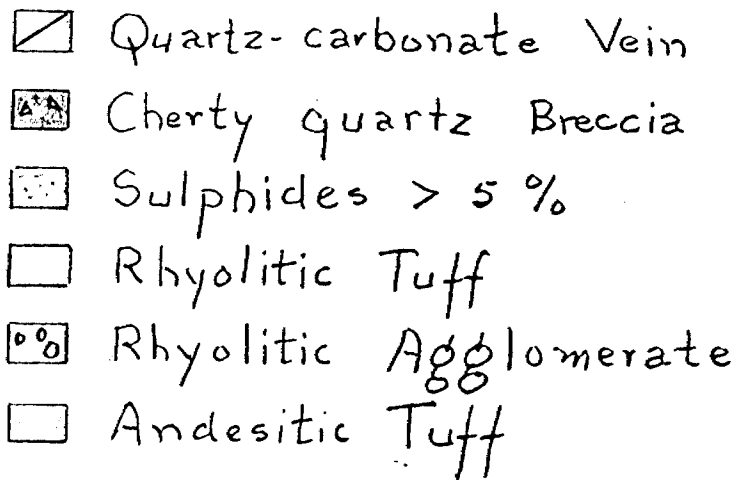 Quartz-carbonate Vein
Cherty quartz Breccia
Sulphides > 5 %
Rhyolitic Tuff
Rhyolitic Agglomerate
Andesitic Tuff